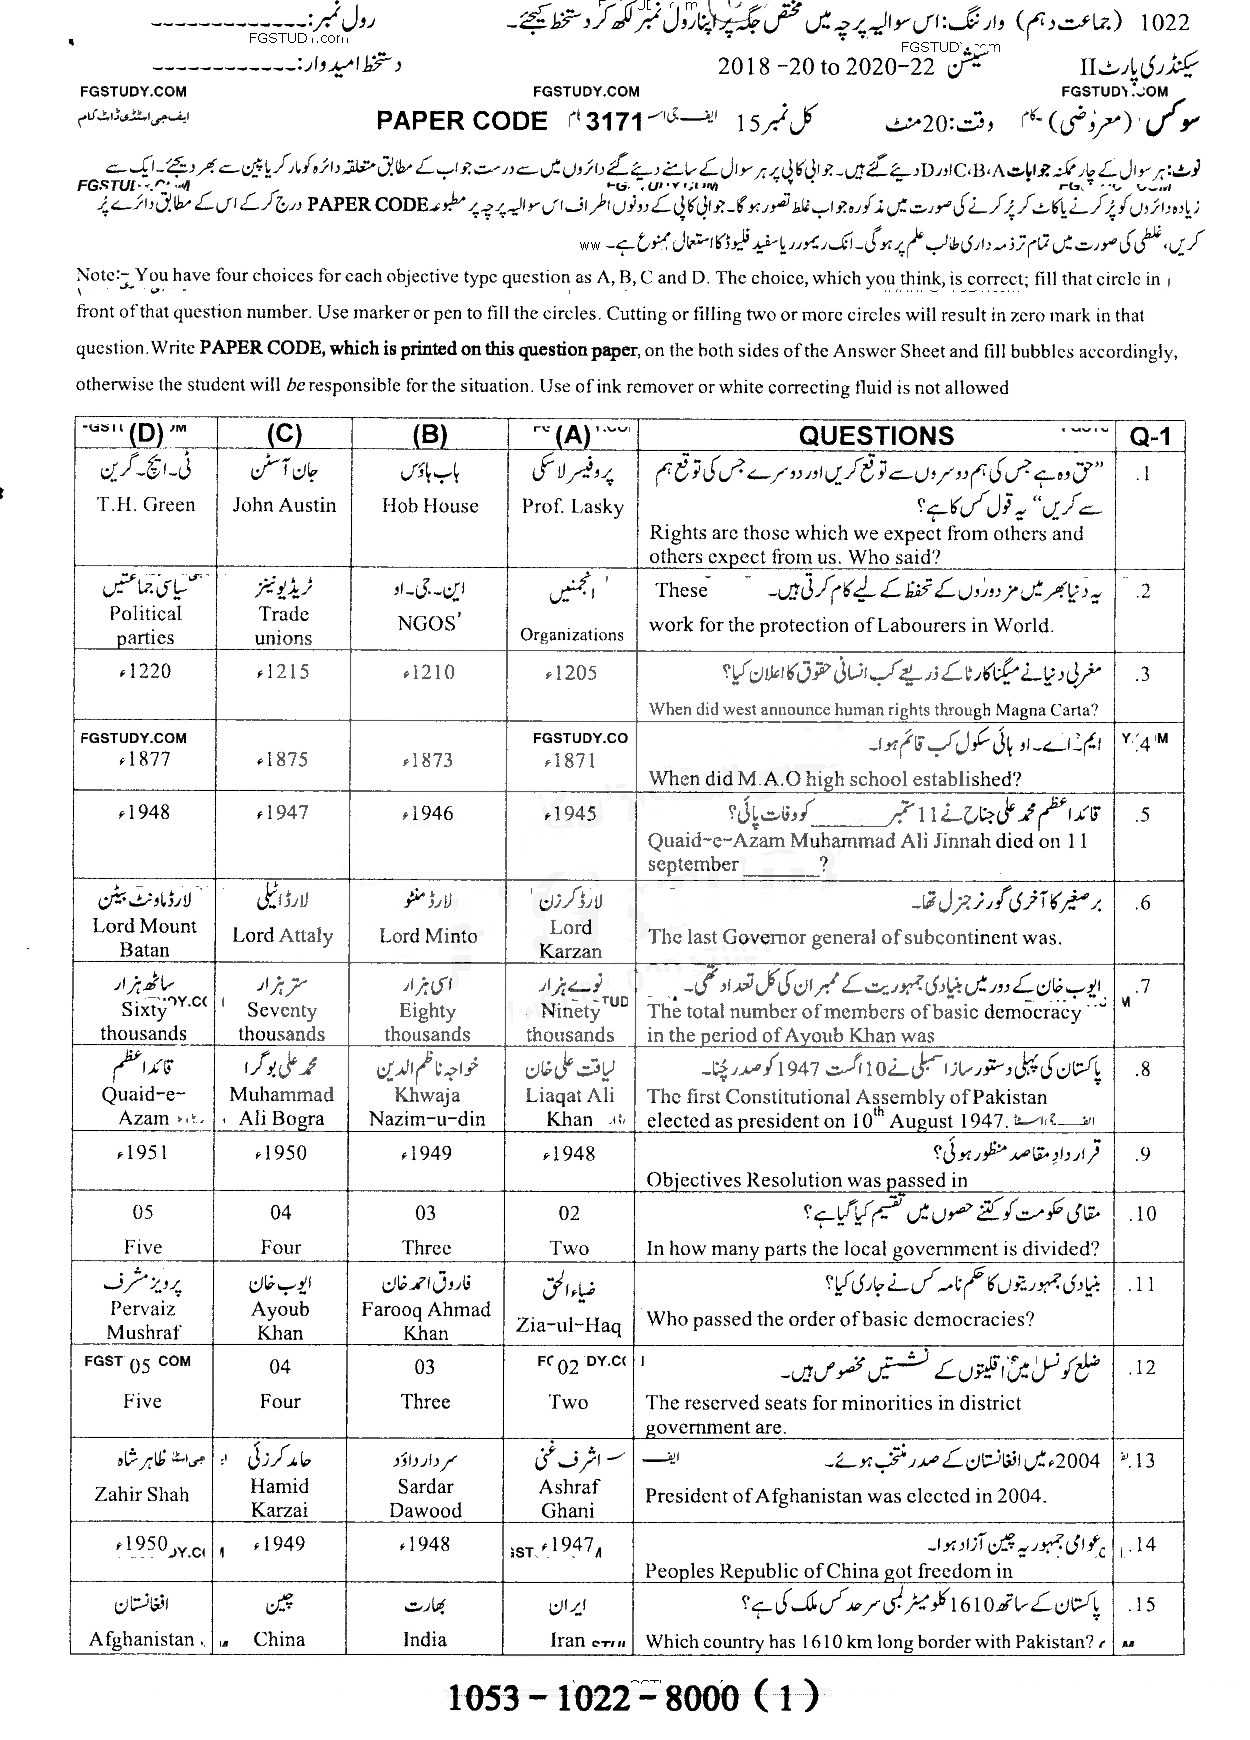 1022 (جماعت دہم) وارننگ: اس سوالیہ پرچہ میں مختص جگہ پر اپنا رول نمبر لکھ کر دستخط کیجئے۔ رول نمبر: -------------
سیکنڈری پارٹ II سیشن 2018 -20 to 2020-22 دستخط امیدوار: ------------
FGSTUDY.COM FGSTUDY.COM
سوکس (معروضی) وقت: 20 منٹ کل نمبر 15 PAPER CODE 3171 ایف جی اسٹڈی ڈاٹ کام
نوٹ: ہر سوال کے چار ممکنہ جوابات C،B،A اور D دیئے گئے ہیں۔ جوابی کاپی پر ہر سوال کے سامنے دیئے گئے دائروں میں سے درست جواب کے مطابق متعلقہ دائرہ کو مارکر یا پین سے بھر دیجئے۔ ایک سے
زیادہ دائروں کو پُر کرنے یا کاٹ کر پُر کرنے کی صورت میں مذکورہ جواب غلط تصور ہو گا۔ جوابی کاپی کے دونوں اطراف اس سوالیہ پرچہ پر مطبوعہ PAPER CODE درج کر کے اس کے مطابق دائرے پُر
کریں، غلطی کی صورت میں تمام تر ذمہ داری طالب علم پر ہو گی۔ انک ریمور ریا سفید فلیوڈ کا استعمال ممنوع ہے۔ ww
Note:- You have four choices for each objective type question as A, B, C and D. The choice, which you think, is correct; fill that circle in
front of that question number. Use marker or pen to fill the circles. Cutting or filling two or more circles will result in zero mark in that
question.Write PAPER CODE, which is printed on this question paper, on the both sides of the Answer Sheet and fill bubbles accordingly,
otherwise the student will be responsible for the situation. Use of ink remover or white correcting fluid is not allowed
(D) (C) (B) (A) QUESTIONS Q-1
ٹی۔ ایچ۔ گرین جان آسٹن ہاب ہاؤس پروفیسر لاسکی "حق وہ ہے جس کی ہم دوسروں سے توقع کریں اور دوسرے جس کی توقع ہم .1
سے کریں" یہ قول کس کا ہے؟
T.H. Green John Austin Hob House Prof. Lasky Rights are those which we expect from others and
others expect from us. Who said?
سیاسی جماعتیں ٹریڈ یونینز این۔ جی۔ او انجمنیں These یہ دنیا بھر میں مزدوروں کے تحفظ کے لیے کام کرتی ہیں۔ .2
Political parties Trade unions NGOS’ Organizations work for the protection of Labourers in World.
1220ء 1215ء 1210ء 1205ء مغربی دنیا نے میگنا کارٹا کے ذریعے کب انسانی حقوق کا اعلان کیا؟ .3
When did west announce human rights through Magna Carta?
FGSTUDY.COM FGSTUDY.CO
1877ء 1875ء 1873ء 1871ء ایم۔ اے۔ او ہائی سکول کب قائم ہوا۔ 4
When did M.A.O high school established?
1948ء 1947ء 1946ء 1945ء قائداعظم محمد علی جناح نے 11 ستمبر ______ کو وفات پائی؟ .5
Quaid-e-Azam Muhammad Ali Jinnah died on 11
september ______?
لارڈ ماونٹ بیٹن لارڈ اٹیلی لارڈ منٹو لارڈ کرزن برصغیر کا آخری گورنر جنرل تھا۔ .6
Lord Mount Batan Lord Attaly Lord Minto Lord Karzan The last Governor general of subcontinent was.
ساٹھ ہزار ستر ہزار اسی ہزار نوے ہزار ایوب خان کے دور میں بنیادی جمہوریت کے ممبران کی کل تعداد تھی۔ .7
Sixty thousands Seventy thousands Eighty thousands Ninety thousands The total number of members of basic democracy
in the period of Ayoub Khan was
قائداعظم محمد علی بوگرا خواجہ ناظم الدین لیاقت علی خان پاکستان کی پہلی دستور ساز اسمبلی نے 10 اگست 1947 کو صدر چُنا۔ .8
Quaid-e-Azam Muhammad Ali Bogra Khwaja Nazim-u-din Liaqat Ali Khan The first Constitutional Assembly of Pakistan
elected as president on 10th August 1947.
1951ء 1950ء 1949ء 1948ء قرارداد مقاصد منظور ہوئی؟ .9
Objectives Resolution was passed in
05 04 03 02 مقامی حکومت کو کتنے حصوں میں تقسیم کیا گیا ہے؟ .10
Five Four Three Two In how many parts the local government is divided?
پرویز مشرف ایوب خان فاروق احمد خان ضیاء الحق بنیادی جمہوریتوں کا حکم نامہ کس نے جاری کیا؟ .11
Pervaiz Mushraf Ayoub Khan Farooq Ahmad Khan Zia-ul-Haq Who passed the order of basic democracies?
05 04 03 02 ضلع کونسل میں اقلیتوں کے نشستیں مخصوص ہیں۔ .12
Five Four Three Two The reserved seats for minorities in district
government are.
ظاہر شاہ حامد کرزئی سردار داؤد اشرف غنی 2004ء میں افغانستان کے صدر منتخب ہوئے۔ .13
Zahir Shah Hamid Karzai Sardar Dawood Ashraf Ghani President of Afghanistan was elected in 2004.
1950ء 1949ء 1948ء 1947ء عوامی جمہوریہ چین آزاد ہوا۔ .14
Peoples Republic of China got freedom in
افغانستان چین بھارت ایران پاکستان کے ساتھ 1610 کلومیٹر لمبی سرحد کس ملک کی ہے؟ .15
Afghanistan China India Iran Which country has 1610 km long border with Pakistan?
1053 – 1022 – 8000 (1)